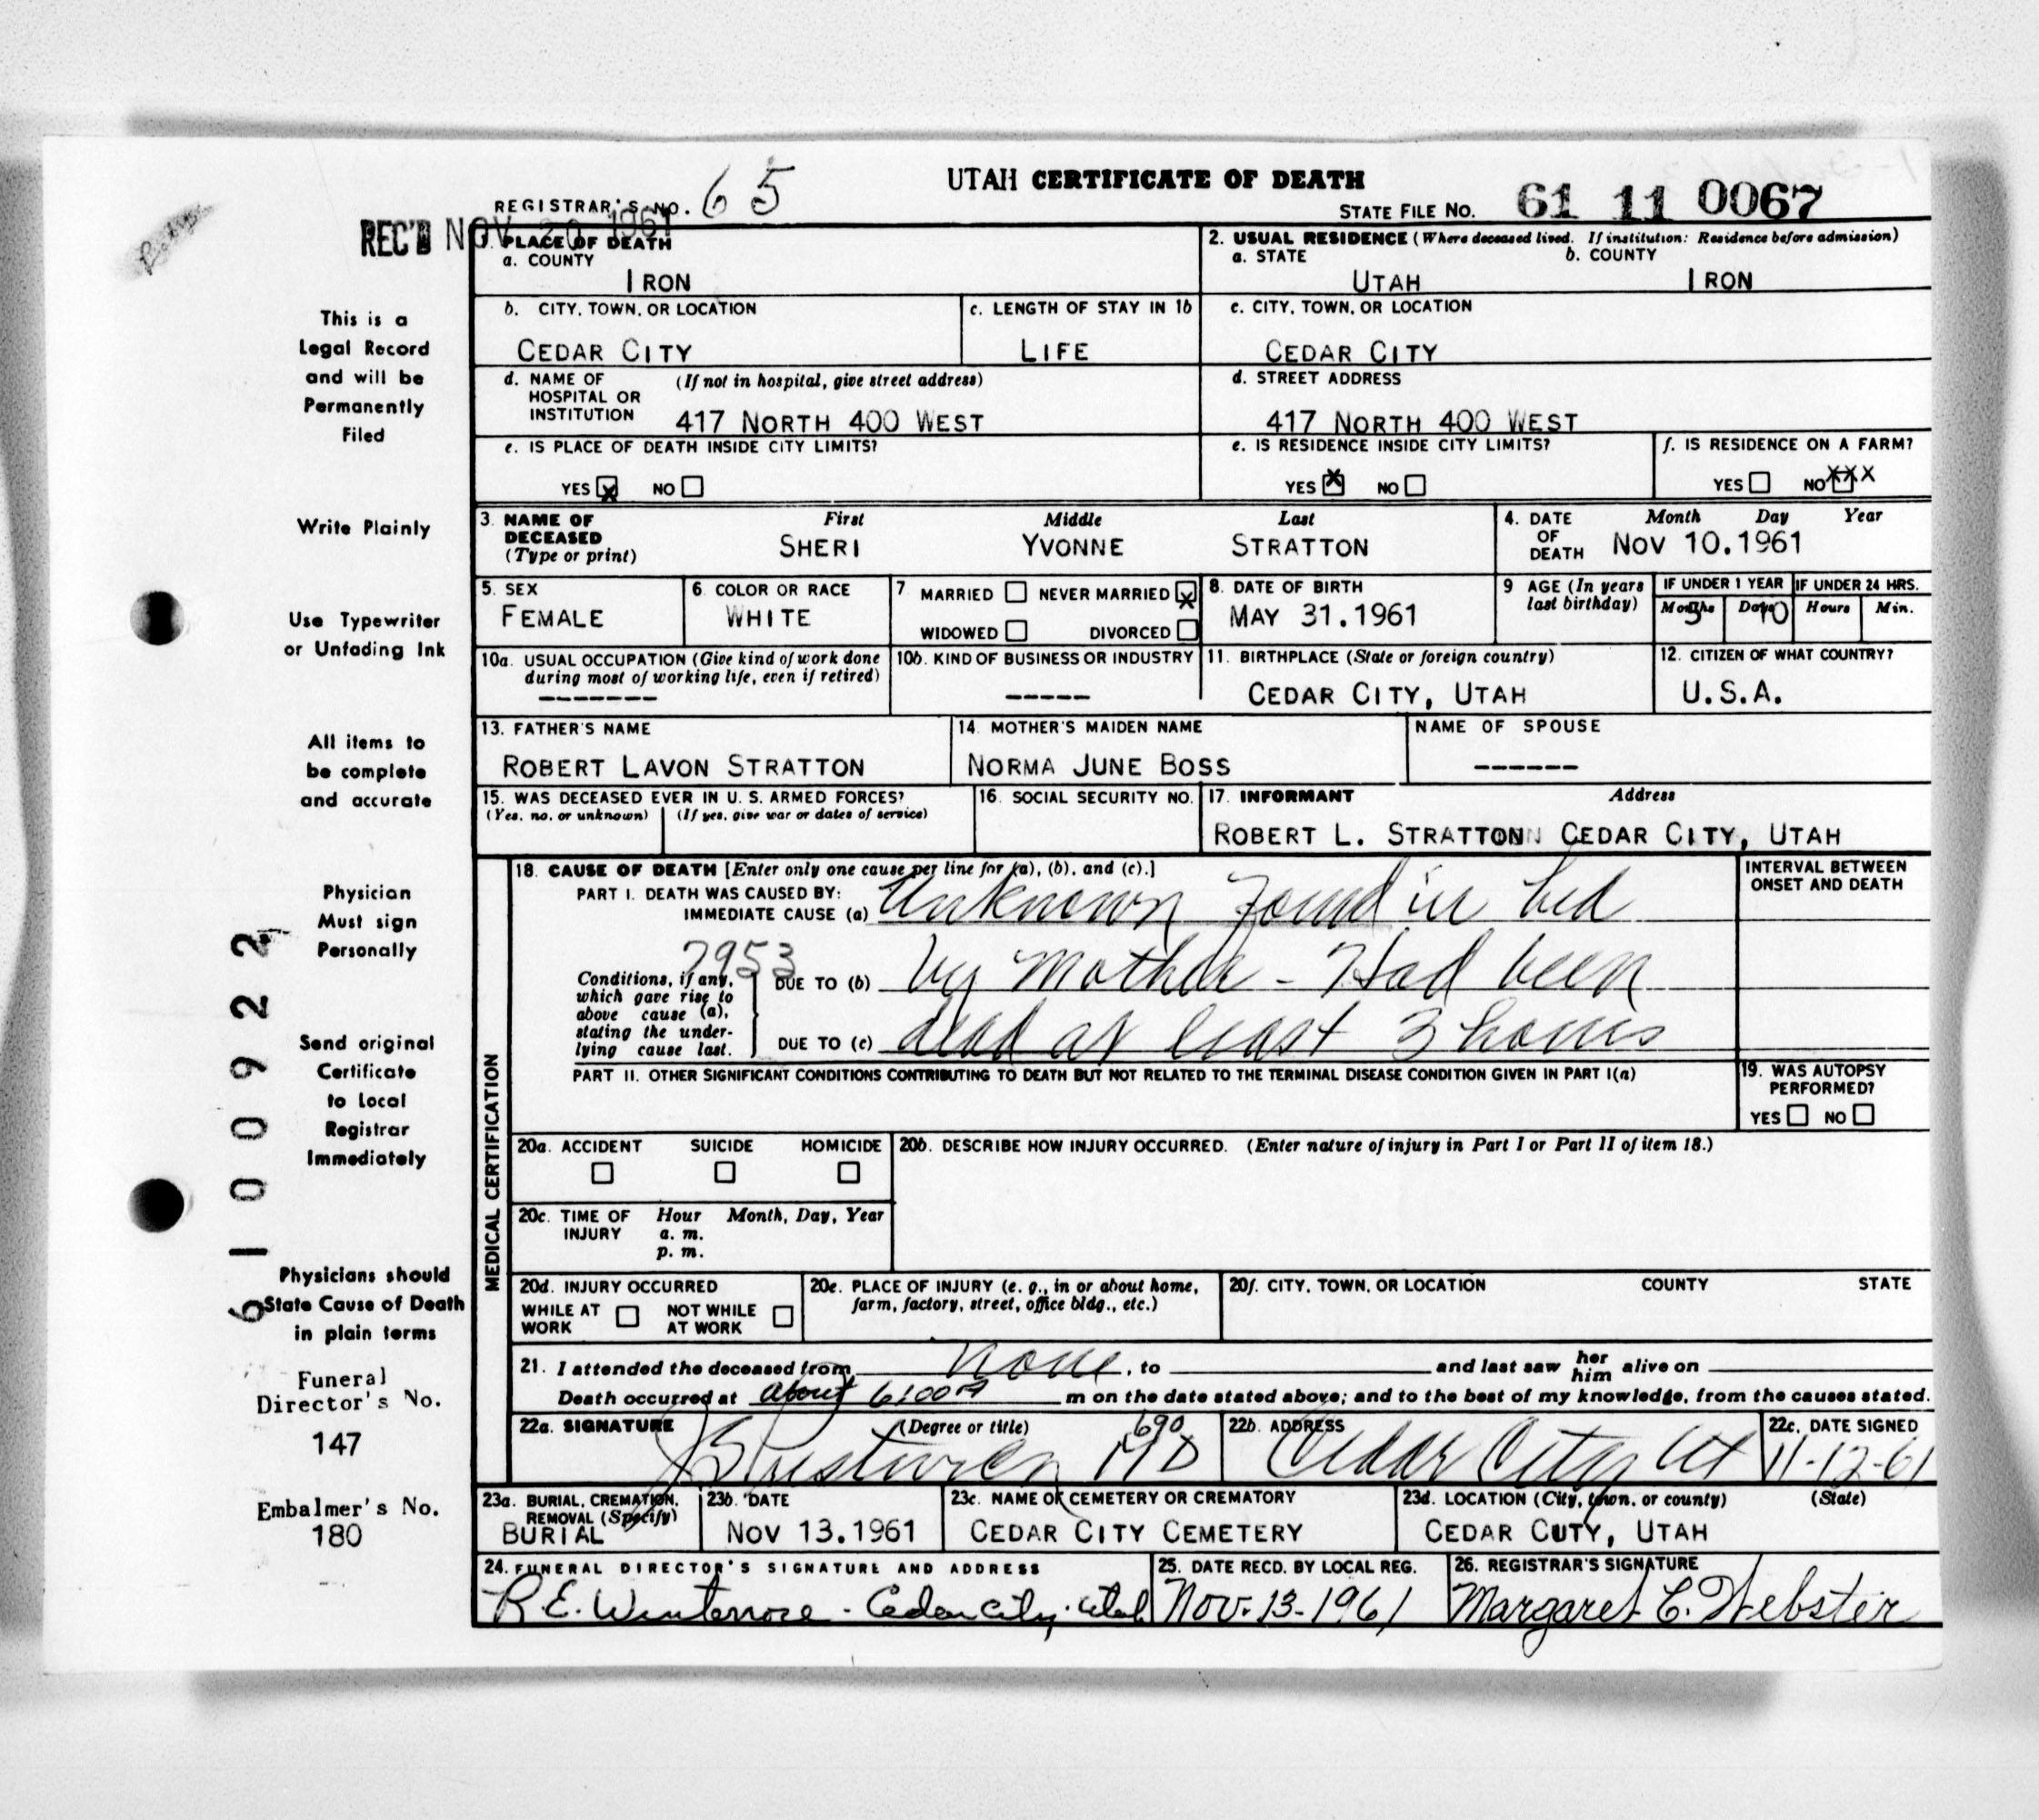 UTAH CERTIFICATE OF DEATH
REGISTRAR'S NO. 65
STATE FILE NO. 61 11 0067
REC'D NOV 20 1961
This is a
Legal Record
and will be
Permanently
Filed
Write Plainly
Use Typewriter
or Unfading Ink
All items to
be complete
and accurate
Physician
Must sign
Personally
Send original
Certificate
to Local
Registrar
Immediately
Physicians should
State Cause of Death
in plain terms
Funeral
Director's No.
147
Embalmer's No.
180
6100922
PLACE OF DEATH
a. COUNTY
IRON
2. USUAL RESIDENCE (Where deceased lived. If institution: Residence before admission)
a. STATE b. COUNTY
UTAH IRON
b. CITY, TOWN, OR LOCATION
CEDAR CITY
c. LENGTH OF STAY IN 1b
LIFE
c. CITY, TOWN, OR LOCATION
CEDAR CITY
d. NAME OF (If not in hospital, give street address)
HOSPITAL OR
INSTITUTION 417 NORTH 400 WEST
d. STREET ADDRESS
417 NORTH 400 WEST
e. IS PLACE OF DEATH INSIDE CITY LIMITS?
YES X NO
e. IS RESIDENCE INSIDE CITY LIMITS?
YES X NO
f. IS RESIDENCE ON A FARM?
YES NO XXX
3. NAME OF First Middle Last
DECEASED
(Type or print) SHERI YVONNE STRATTON
4. DATE Month Day Year
OF
DEATH NOV 10.1961
5. SEX
FEMALE
6. COLOR OR RACE
WHITE
7. MARRIED NEVER MARRIED X
WIDOWED DIVORCED
8. DATE OF BIRTH
MAY 31.1961
9 AGE (In years
last birthday)
IF UNDER 1 YEAR IF UNDER 24 HRS.
Months Days Hours Min.
5 10
10a. USUAL OCCUPATION (Give kind of work done
during most of working life, even if retired)
-------
10b. KIND OF BUSINESS OR INDUSTRY
-----
11. BIRTHPLACE (State or foreign country)
CEDAR CITY, UTAH
12. CITIZEN OF WHAT COUNTRY?
U.S.A.
13. FATHER'S NAME
ROBERT LAVON STRATTON
14. MOTHER'S MAIDEN NAME
NORMA JUNE BOSS
NAME OF SPOUSE
------
15. WAS DECEASED EVER IN U. S. ARMED FORCES?
(Yes, no, or unknown) (If yes, give war or dates of service)
16. SOCIAL SECURITY NO.
17. INFORMANT Address
ROBERT L. STRATTON CEDAR CITY, UTAH
MEDICAL CERTIFICATION
18. CAUSE OF DEATH [Enter only one cause per line for (a), (b), and (c).]
PART I. DEATH WAS CAUSED BY:
IMMEDIATE CAUSE (a) Unknown found in bed
7953
Conditions, if any,
which gave rise to
above cause (a),
stating the under-
lying cause last.
DUE TO (b) by Mother - Had been
DUE TO (c) dead at least 3 hours
INTERVAL BETWEEN
ONSET AND DEATH
PART II. OTHER SIGNIFICANT CONDITIONS CONTRIBUTING TO DEATH BUT NOT RELATED TO THE TERMINAL DISEASE CONDITION GIVEN IN PART I(a)
19. WAS AUTOPSY
PERFORMED?
YES NO
20a. ACCIDENT SUICIDE HOMICIDE
20b. DESCRIBE HOW INJURY OCCURRED. (Enter nature of injury in Part I or Part II of item 18.)
20c. TIME OF Hour Month, Day, Year
INJURY a. m.
p. m.
20d. INJURY OCCURRED
WHILE AT NOT WHILE
WORK AT WORK
20e. PLACE OF INJURY (e. g., in or about home,
farm, factory, street, office bldg., etc.)
20f. CITY, TOWN, OR LOCATION COUNTY STATE
21. I attended the deceased from none, to and last saw her him alive on
Death occurred at about 6:00 A m on the date stated above; and to the best of my knowledge, from the causes stated.
22a. SIGNATURE (Degree or title) 690
MD
22b. ADDRESS
Cedar City Ut
22c. DATE SIGNED
11-12-61
23a. BURIAL, CREMATION,
REMOVAL (Specify)
BURIAL
23b. DATE
NOV 13.1961
23c. NAME OF CEMETERY OR CREMATORY
CEDAR CITY CEMETERY
23d. LOCATION (City, town, or county) (State)
CEDAR CUTY, UTAH
24. FUNERAL DIRECTOR'S SIGNATURE AND ADDRESS
R.E. - Cedar City, Utah
25. DATE RECD. BY LOCAL REG.
Nov. 13-1961
26. REGISTRAR'S SIGNATURE
Margaret C. Webster